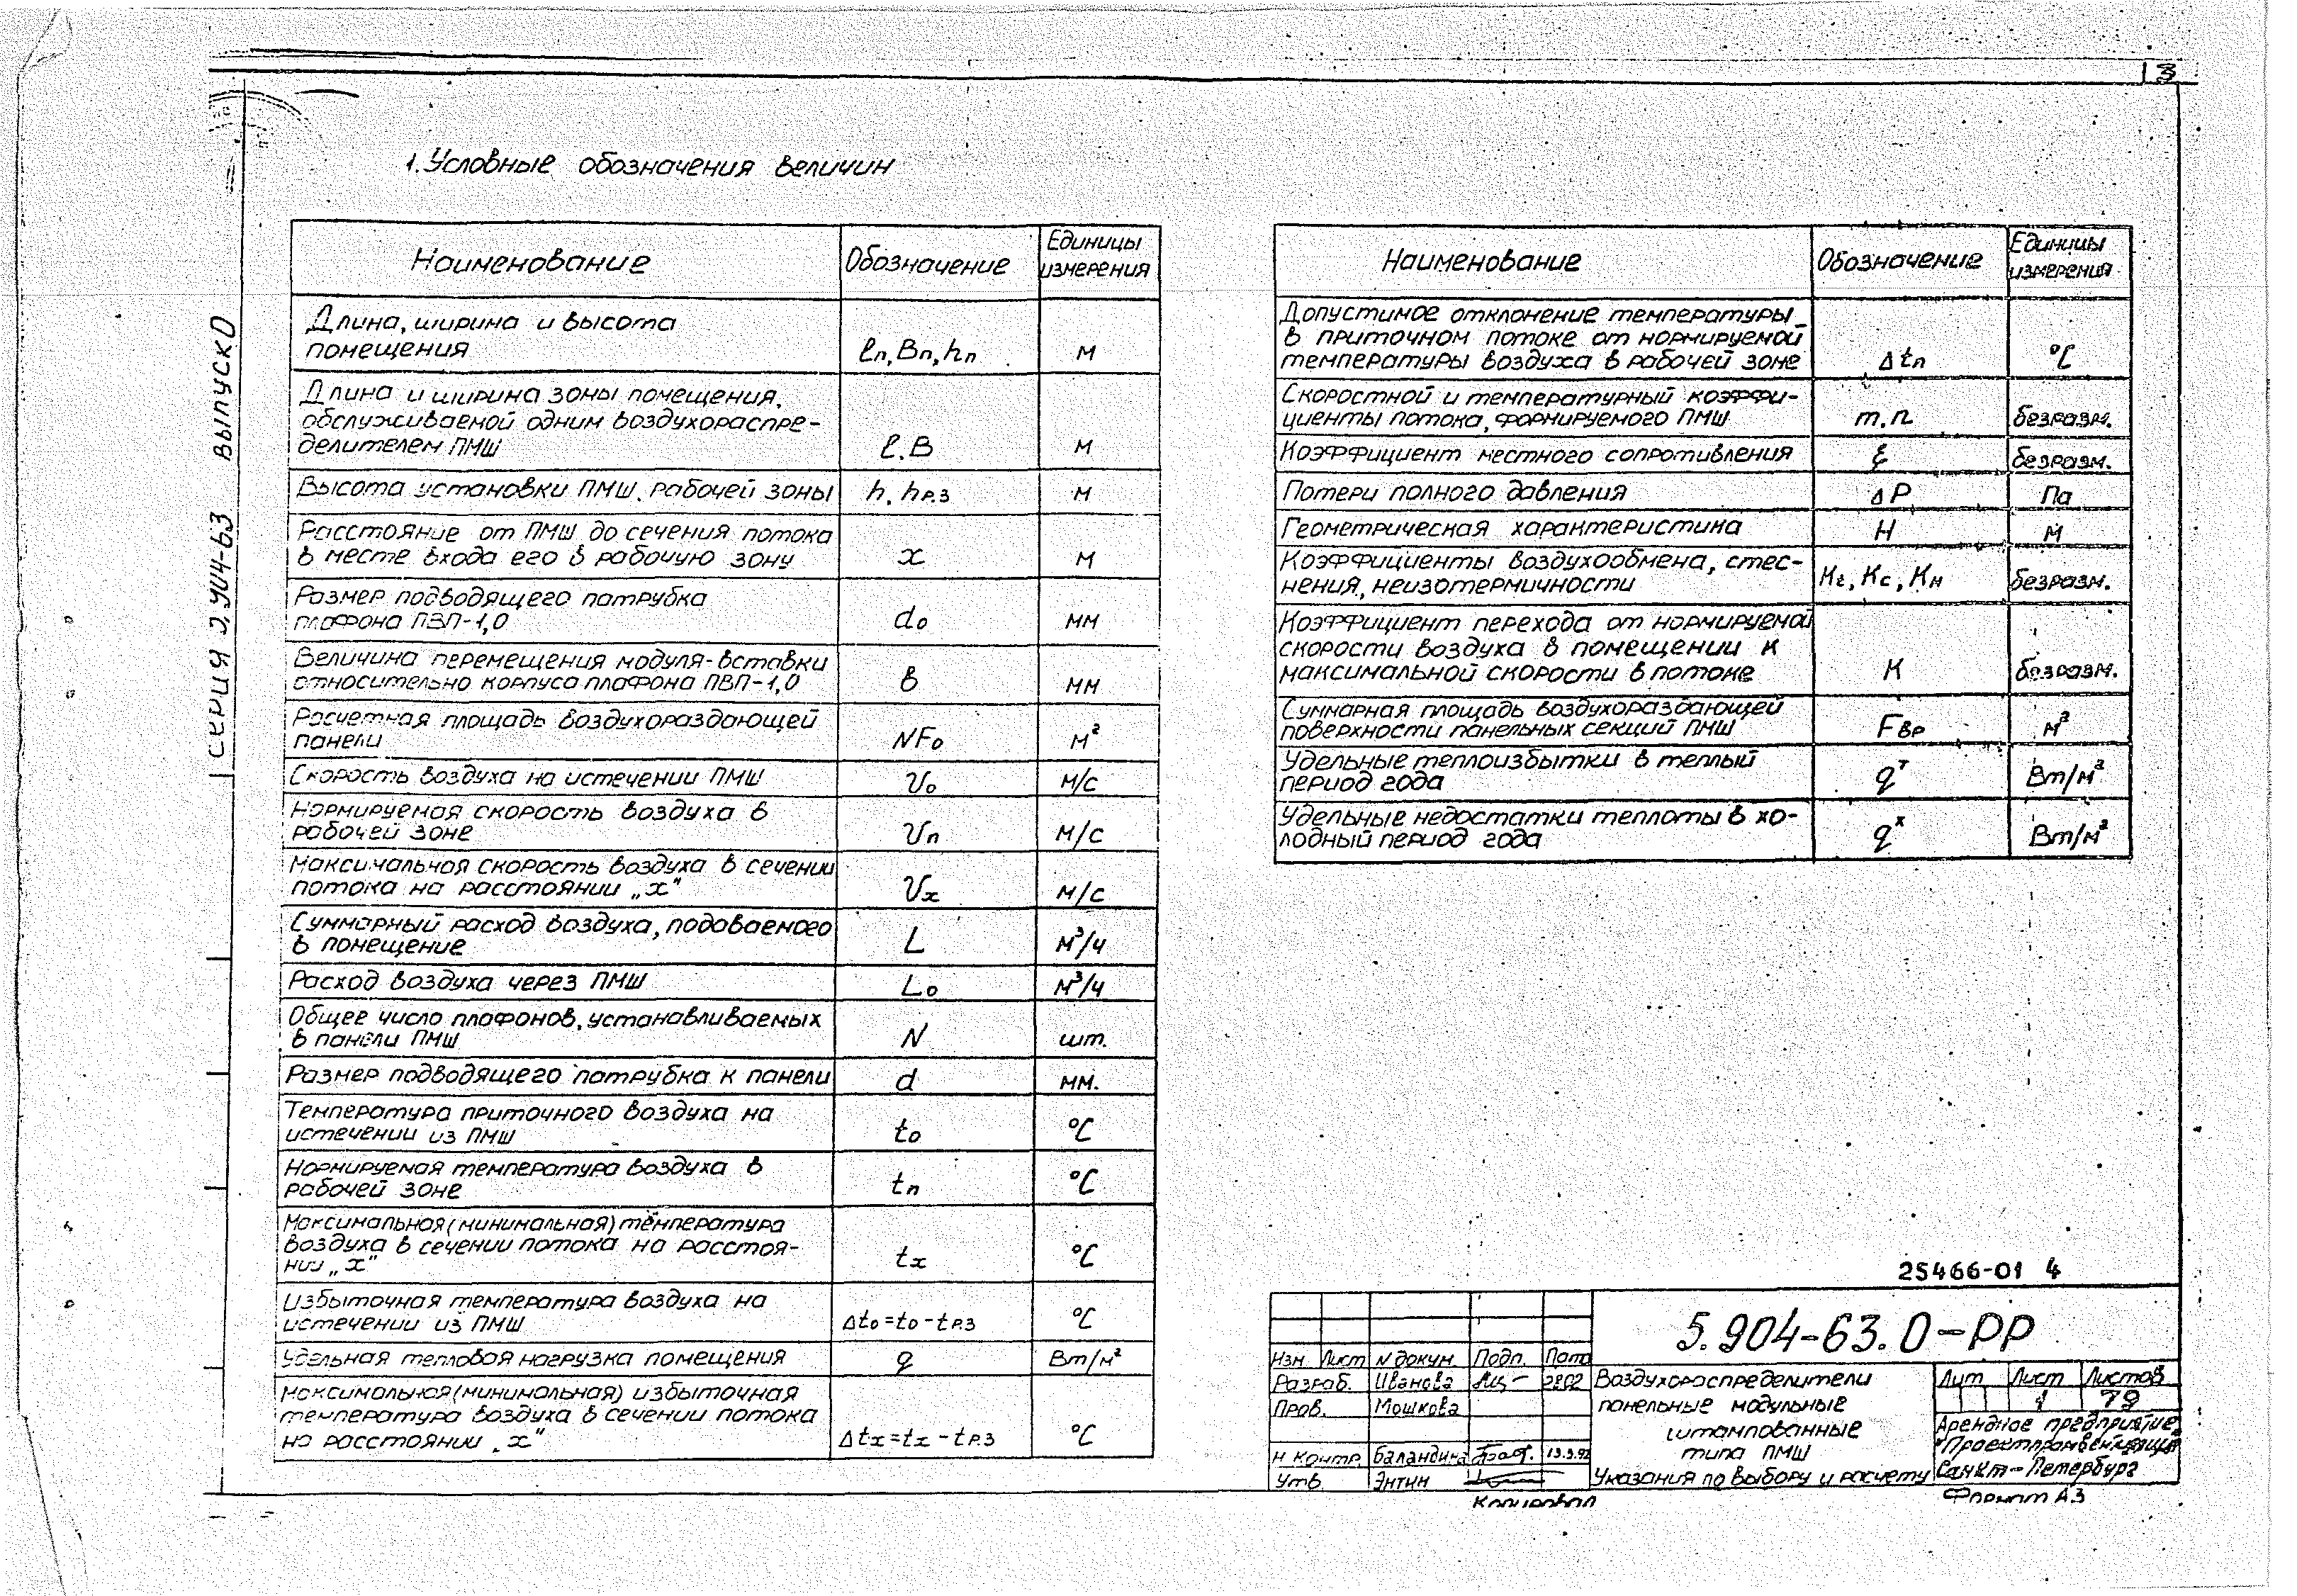 3
1. Условные обозначения величин
серия 5.904-63 выпуск 0
Наименование
Обозначение
Единицы
измерения
Длина, ширина и высота
помещения
ℓп, Вп, hп
м
Длина и ширина зоны помещения,
обслуживаемой одним воздухораспре-
делителем ПМШ
ℓ. В
м
Высота установки ПМШ, рабочей зоны
h, hр.з
м
Расстояние от ПМШ до сечения потока
в месте входа его в рабочую зону
x
м
Размер подводящего патрубка
плафона ПВП-1,0
dо
мм
Величина перемещения модуля-вставки
относительно корпуса плафона ПВП-1,0
в
мм
Расчетная площадь воздухораздающей
панели
NFо
м²
Скорость воздуха на истечении ПМШ
Vо
м/с
Нормируемая скорость воздуха в
рабочей зоне
Vп
м/с
Максимальная скорость воздуха в сечении
потока на расстоянии „x"
Vx
м/с
Суммарный расход воздуха, подаваемого
в помещение
L
м³/ч
Расход воздуха через ПМШ
Lо
м³/ч
Общее число плафонов, устанавливаемых
в панели ПМШ
N
шт.
Размер подводящего патрубка к панели
d
мм.
Температура приточного воздуха на
истечении из ПМШ
tо
°C
Нормируемая температура воздуха в
рабочей зоне
tп
°C
Максимальная (минимальная) температура
воздуха в сечении потока на расстоя-
нии „x"
tx
°C
Избыточная температура воздуха на
истечении из ПМШ
Δtо=tо-tр.з
°C
Удельная тепловая нагрузка помещения
q
Вт/м²
Максимальная (минимальная) избыточная
температура воздуха в сечении потока
на расстоянии „x"
Δtx=tx-tр.з
°C
Наименование
Обозначение
Единицы
измерения
Допустимое отклонение температуры
в приточном потоке от нормируемой
температуры воздуха в рабочей зоне
Δtп
°C
Скоростной и температурный коэффи-
циенты потока, формируемого ПМШ
m. n
безразм.
Коэффициент местного сопротивления
ξ
безразм.
Потери полного давления
ΔР
Па
Геометрическая характеристика
Н
м
Коэффициенты воздухообмена, стес-
нения, неизотермичности
Kг, Kс, Kн
безразм.
Коэффициент перехода от нормируемой
скорости воздуха в помещении к
максимальной скорости в потоке
К
безразм.
Суммарная площадь воздухораздающей
поверхности панельных секций ПМШ
Fвр
м²
Удельные теплоизбытки в теплый
период года
qᵀ
Вт/м²
Удельные недостатки теплоты в хо-
лодный период года
qˣ
Вт/м²
25466-01 4
5.904-63.0-РР
Изм Лист N докум. Подп. Дата
Разраб. Иванова 2802
Пров. Мошкова
Н контр. Баландина 13.3.92
Утв. Энтин
Воздухораспределители
панельные модульные
штампованные
типа ПМШ
Указания по выбору и расчету
Лит Лист Листов
1 79
Арендное предприятие
"Проектпромвентиляция"
Санкт-Петербург
Копировал
Формат А3